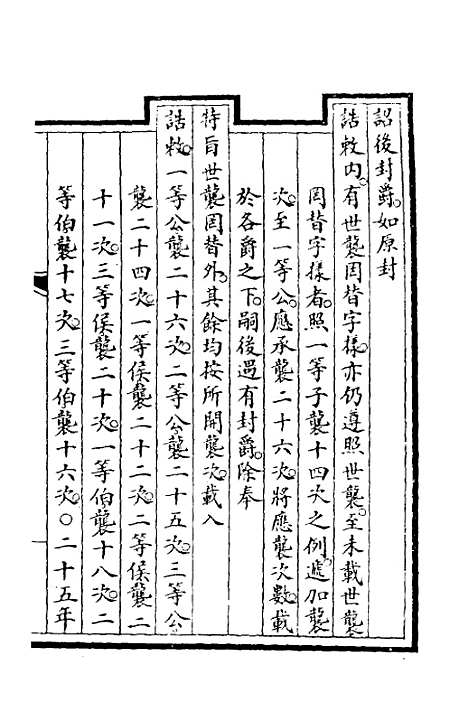 詔後封爵。如原封
誥敕內。有世襲罔替字樣。亦仍遵照世襲。至未載世襲
罔替字樣者。照一等子襲十四次之例。遞加襲
次。至一等公。應承襲二十六次。將應襲次數。載
於各爵之下。嗣後遇有封爵。除奉
特旨世襲罔替外。其餘均按所開襲次。載入
誥敕。一等公襲二十六次。二等公襲二十五次。三等公
襲二十四次。一等侯襲二十二次。二等侯襲二
十一次。三等侯襲二十次。一等伯襲十八次。二
等伯襲十七次。三等伯襲十六次。○二十五年